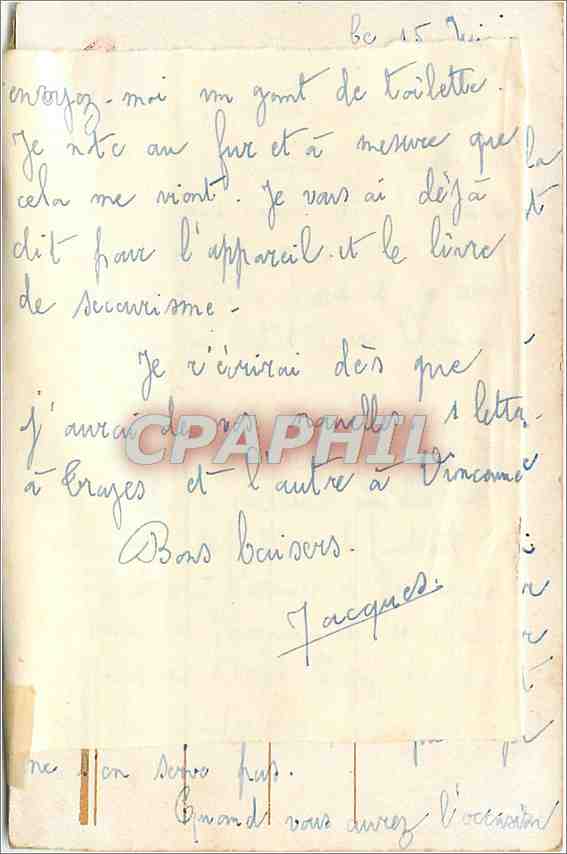 le 15
envoyez-moi un gant de toilette.
Je note au fur et à mesure que
cela me vient. Je vous ai déjà
dit pour l'appareil et le livre
de secourisme.
Je r'écrirai dès que
j'aurai de vos nouvelles. 1 lettre
CPAPHIL
à et l'autre à
Bons baisers.
Jacques.
ne s'en serve pas.
Quand vous aurez l'occasion